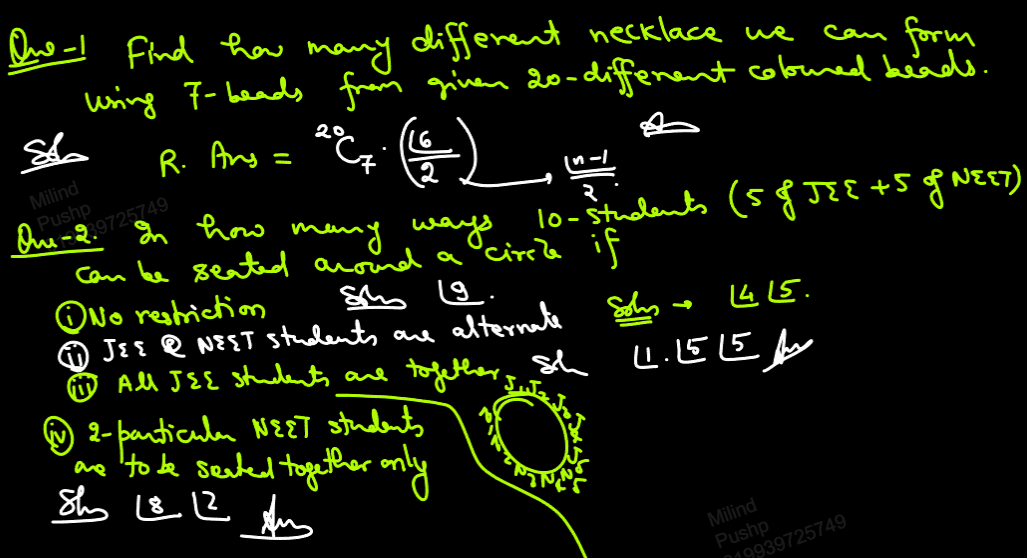 Que-1 Find how many different necklace we can form
using 7-beads from given 20-different coloured beads.
Sol R. Ans = ²⁰C₇ · (⌊6/2) → ⌊n-1/2.
Que-2. In how many ways 10-students (5 of JEE + 5 of NEET)
can be seated around a circle if
(i) No restriction Soln ⌊9.
(ii) JEE & NEET students are alternate Soln → ⌊4 ⌊5.
(iii) All JEE students are together Sol ⌊1. ⌊5 ⌊5 Ans
J₁ J₂ J₃ J₄ J₅
N₁ N₂ N₃ N₄ N₅
(iv) 2-particular NEET students
are to be seated together only
Soln ⌊8 ⌊2 Ans
Milind
Pushp
Milind
Pushp
919939725749